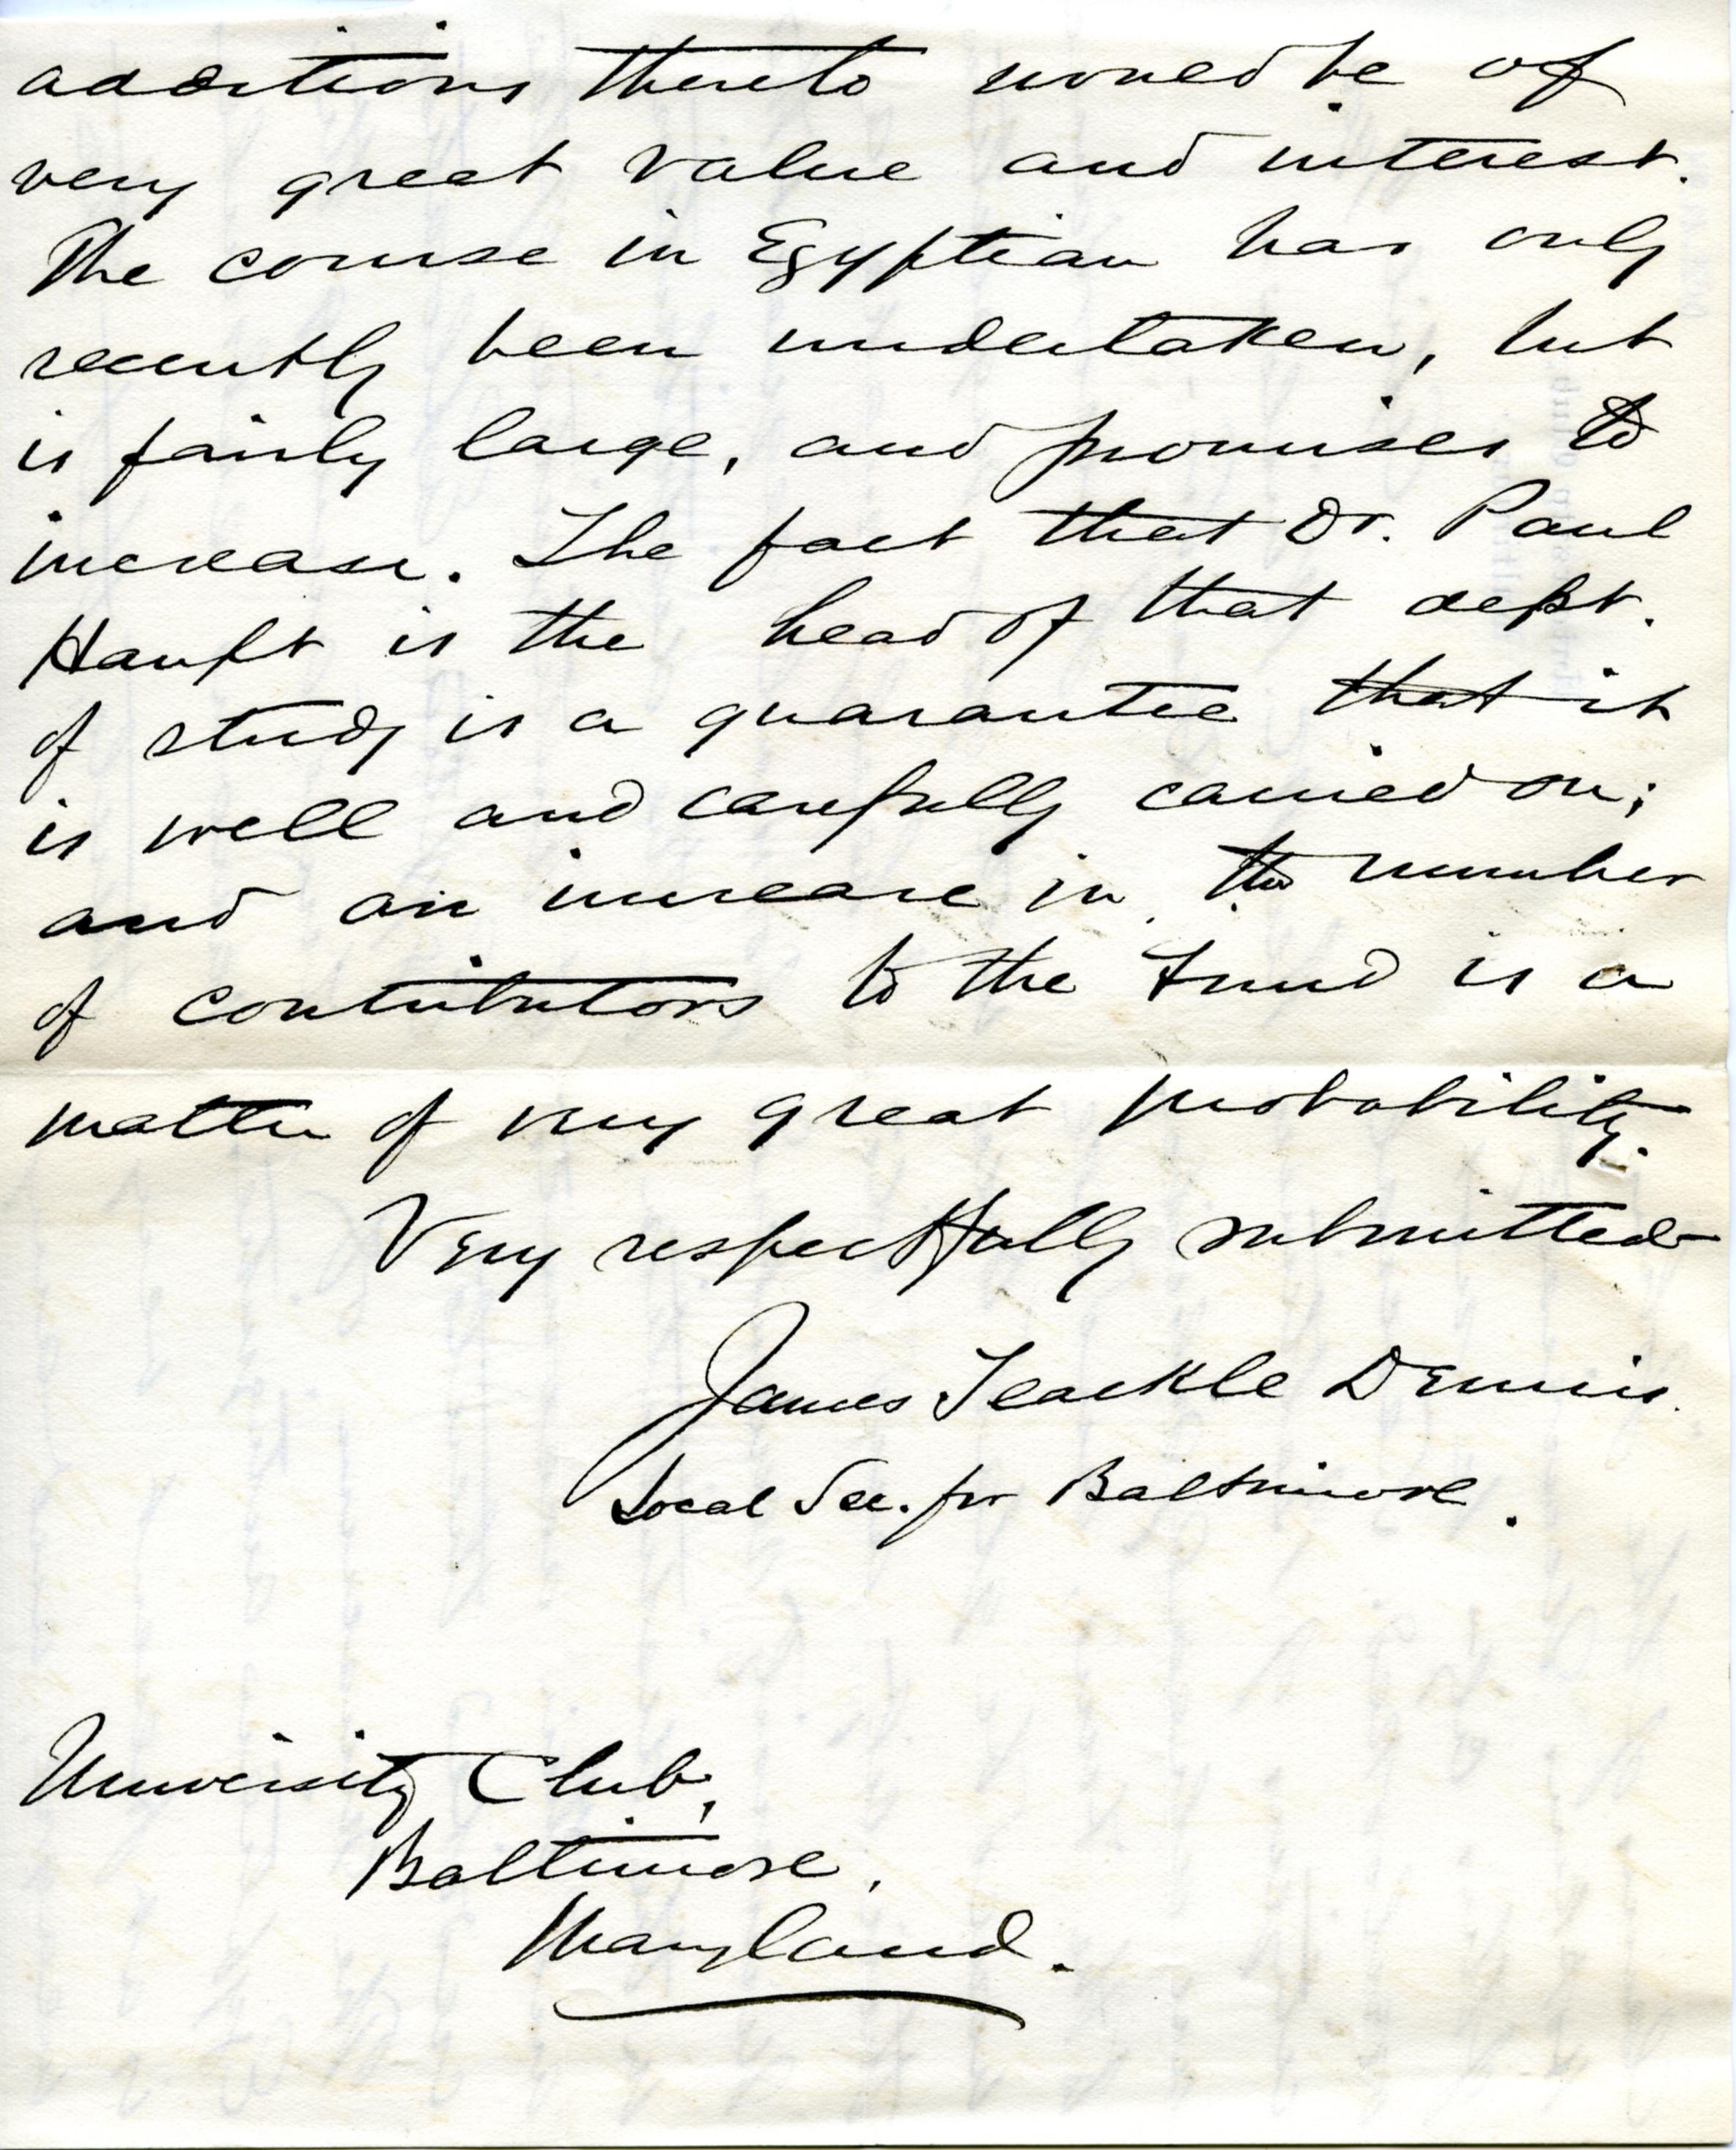 additions thereto would be of
very great value and interest.
The course in Egyptian has only
recently been undertaken, but
is fairly large, and promises to
increase. The fact that Dr. Paul
Haupt is the head of that dept.
of study is a guarantee that it
is well and carefully carried on;
and an increase in the number
of contributors to the Fund is a
matter of very great probability.
Very respectfully submitted
James Teackle Dennis.
Local Sec. for Baltimore.
University Club,
Baltimore,
Maryland.